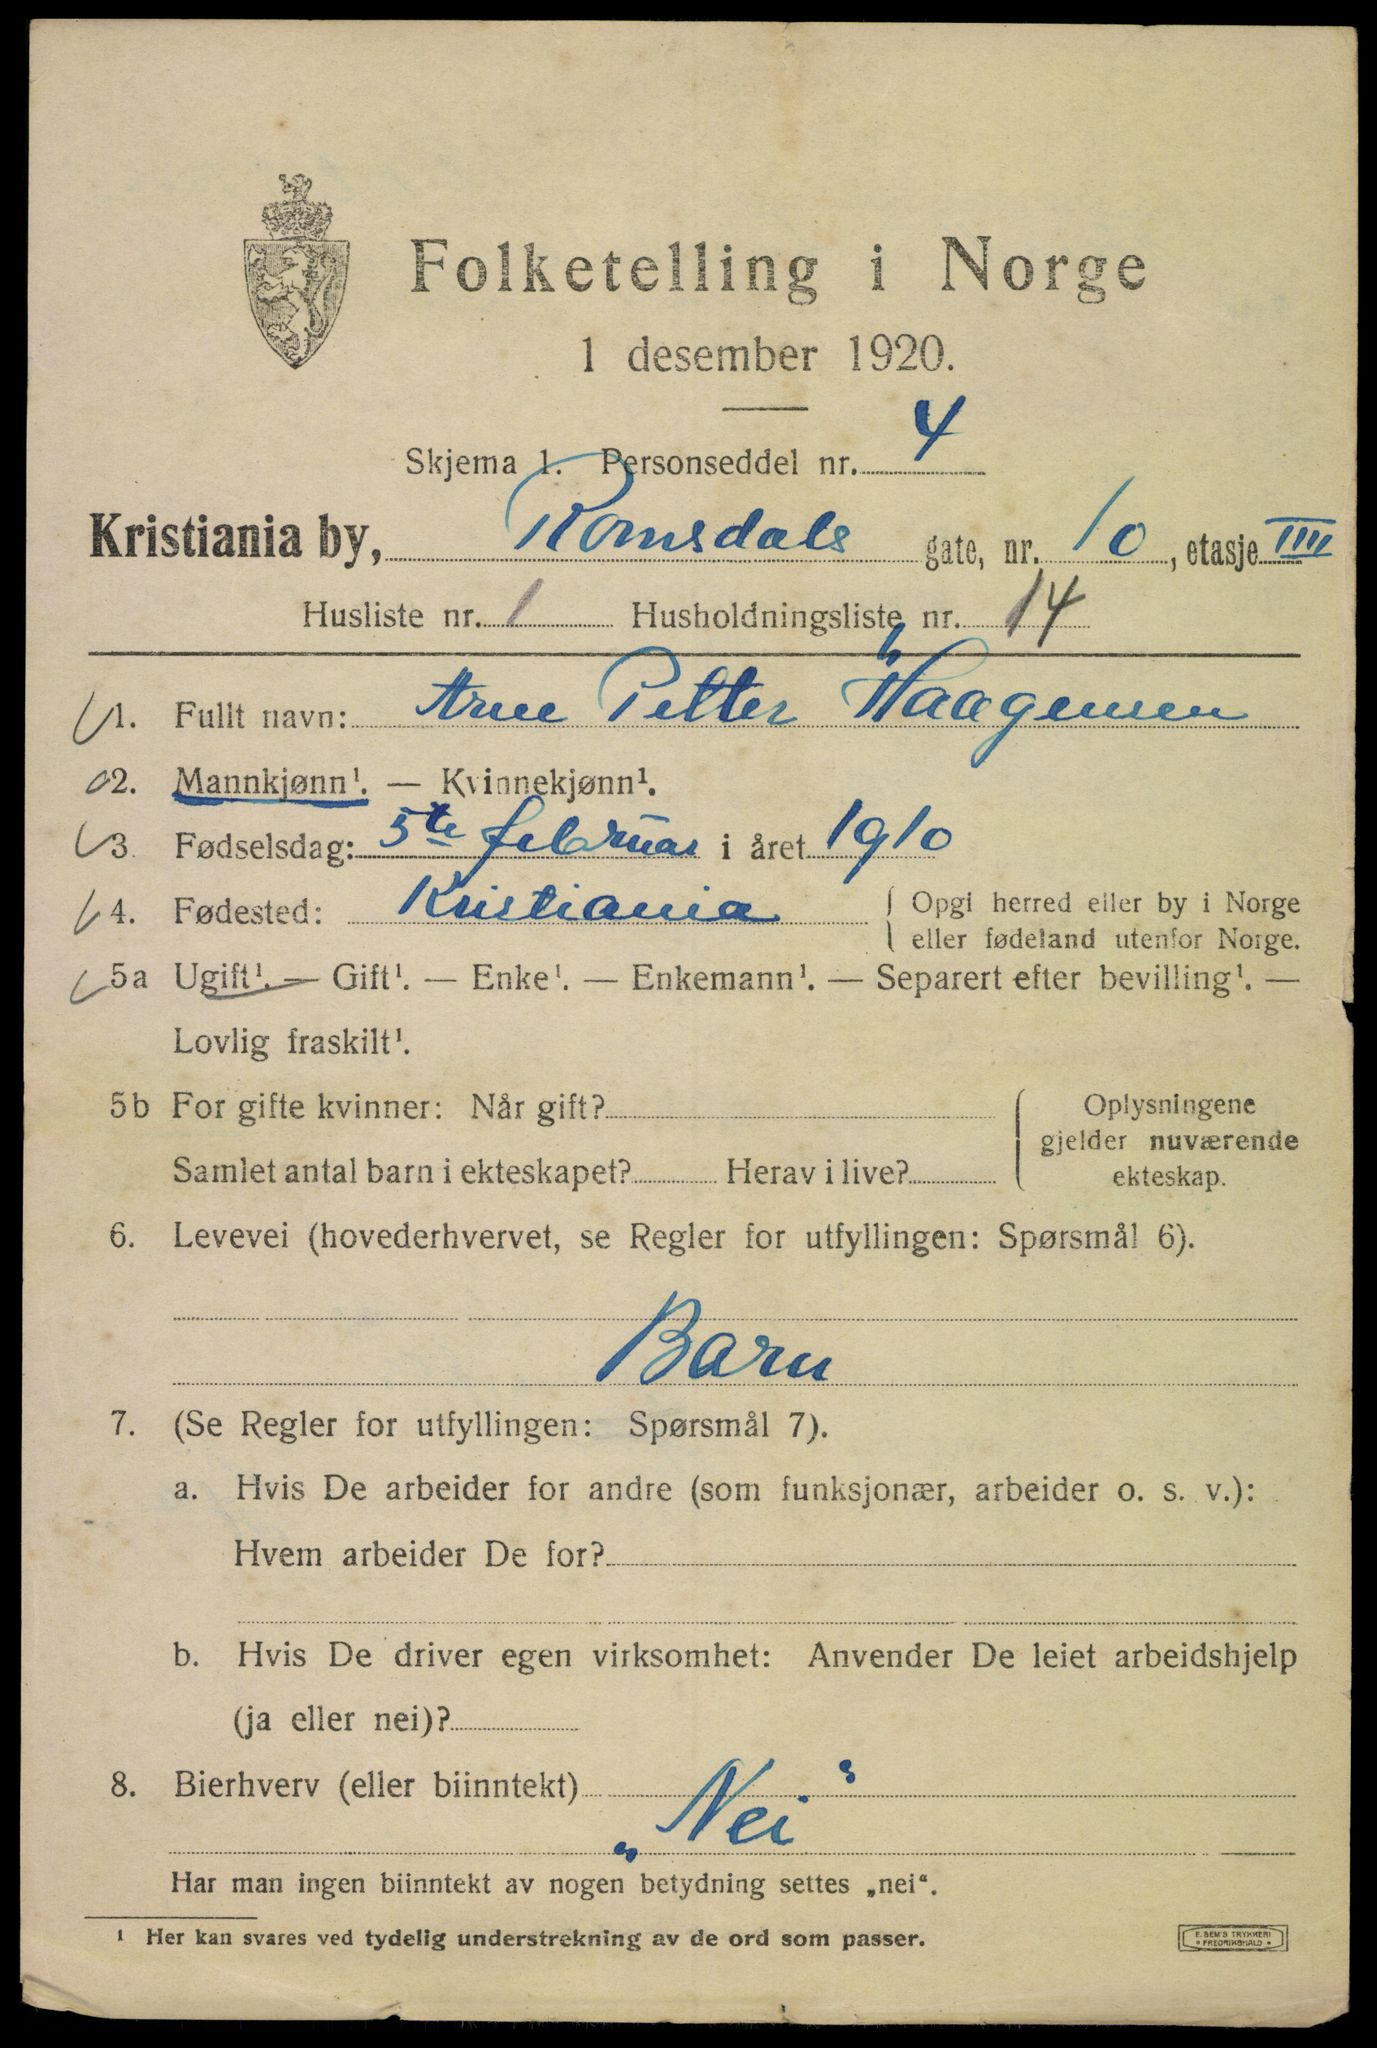 Folketelling i Norge
1 desember 1920.
Skjema 1. Personseddel nr. 4
Kristiania by, Romsdals gate, nr. 10, etasje IIII
Husliste nr. 1 Husholdningsliste nr. 14
1. Fullt navn: Arne Petter Haagensen
2. Mannkjønn¹. — Kvinnekjønn¹.
3. Fødselsdag: 5te februar i året 1910
4. Fødested: Kristiania { Opgi herred eller by i Norge
eller fødeland utenfor Norge.
5a Ugift¹. — Gift¹. — Enke¹. — Enkemann¹. — Separert efter bevilling¹. —
Lovlig fraskilt¹.
5b For gifte kvinner: Når gift? { Oplysningene
gjelder nuværende
Samlet antal barn i ekteskapet? Herav i live? ekteskap.
6. Levevei (hovederhvervet, se Regler for utfyllingen: Spørsmål 6).
Barn
7. (Se Regler for utfyllingen: Spørsmål 7).
a. Hvis De arbeider for andre (som funksjonær, arbeider o. s. v.):
Hvem arbeider De for?
b. Hvis De driver egen virksomhet: Anvender De leiet arbeidshjelp
(ja eller nei)?
8. Bierhverv (eller biinntekt)
„Nei“
Har man ingen biinntekt av nogen betydning settes „nei“.
¹ Her kan svares ved tydelig understrekning av de ord som passer.
E. SEM'S TRYKKERI
• FREDRIKSHALD •